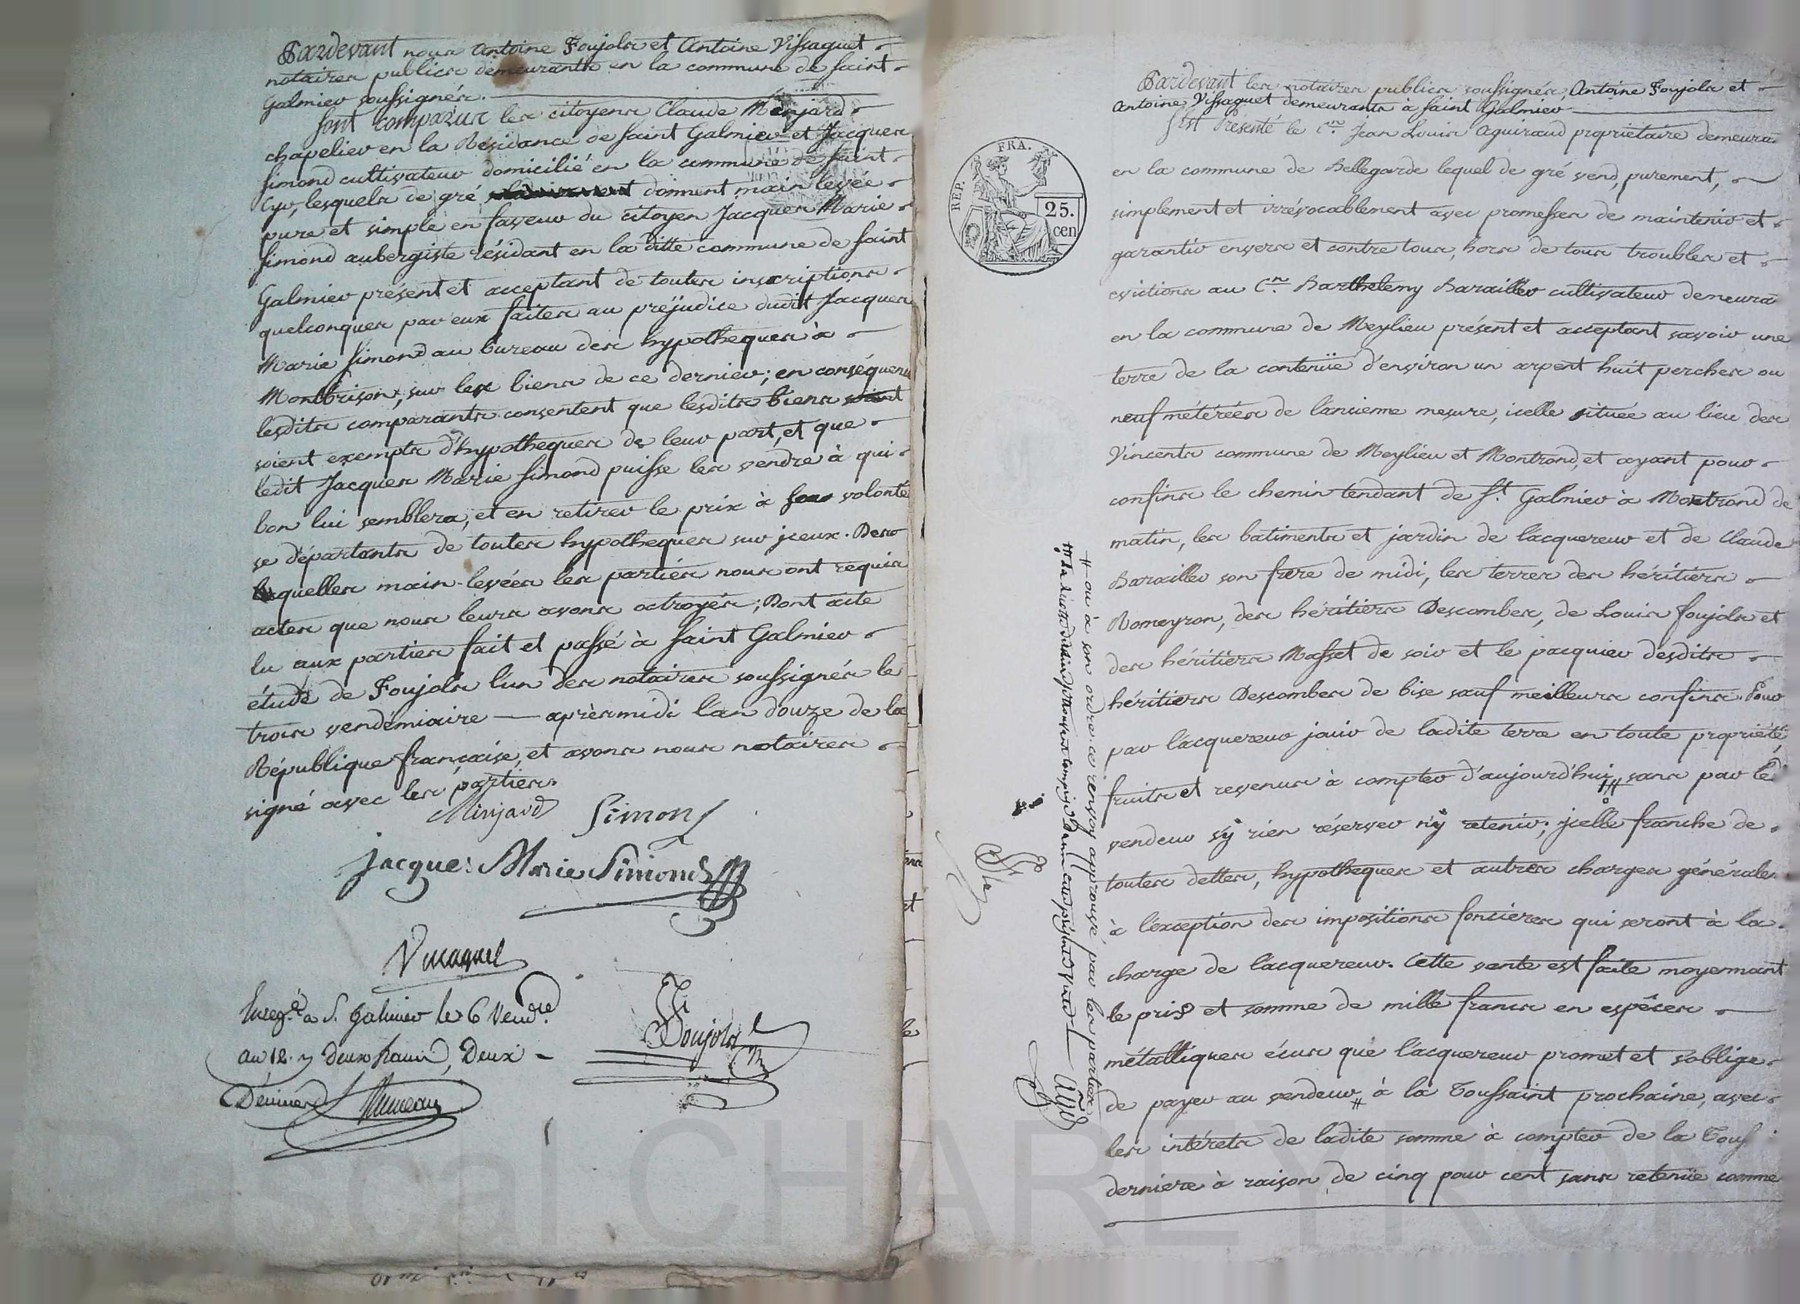 Pardevant nous Antoine Foujols et Antoine Vissaguet
notaires publics demeurants en la commune de saint
Galmier soussignés.
Sont comparus les citoyens Claude Menjard
chapelier en la Résidance de saint Galmier et Jacques
simond cultivateur domicilié en la commune de saint
Cyr, lesquels de gré donnent main levée
pure et simple en faveur du citoyen Jacques Marie
simond aubergiste résidant en la ditte commune de saint
Galmier présent et acceptant de toutes inscriptions
quelconques par eux faites au préjudice dudit Jacques
Marie simond au bureau des hypotheques à
Montbrison, sur les biens de ce dernier; en conséquence
lesdits comparants consentent que lesdits biens
soient exempts d'hypotheques de leur part, et que
ledit Jacques Marie simond puisse les vendre à qui
bon lui semblera, et en retirer le prix à volonté
se départants de toutes hypotheques sur iceux. Des
quelles main-levées les parties nous ont requis
actes que nous leurs avons octroyés; Dont acte
lu aux parties fait et passé à saint Galmier
étude de Foujols l'un des notaires soussignés le
trois vendémiaire — après midi l'an douze de la
République française, et avons nous notaires
signé avec les parties.
Minjard Simon
Jacque: Marie Simond
Vissaguet
Enreg.é a S. Galmier le 6 Vend.re
an 12. deux francs, Deux
Foujols
FRA.
REP.
25.
cen
Pardevant les notaires publics soussignés Antoine Foujols et
Antoine Vissaguet demeurants à saint Galmier
s'est Présenté le C.en Jean Louis Aguiraud propriétaire demeurant
en la commune de Bellegarde lequel de gré vend, purement,
simplement et irrévocablement avec promesses de maintenir et
garantir envers et contre tous, hors de tous troubles et
evictions au C.en Barthelemy Barailler cultivateur demeurant
en la commune de Meylieu présent et acceptant savoir une
terre de la contenüe d'environ un arpent huit perches ou
neuf métérées de l'ancienne mesure, icelle située au lieu des
Vincents commune de Meylieu et Montrond, et ayant pour
confins le chemin tendant de S.t Galmier à Montrond de
matin, les batiments et jardin de l'acquereur et de Claude
Barailler son frere de midi, les terres des héritiers
Romeyron, des héritiers Descombes, de Louis foujols et
des héritiers Masset de soir et le pacquier desdits
héritiers Descombes de bise sauf meilleurs confins. Pour
par l'acquereur jouir de ladite terre en toute propriété,
fruits et revenus à compter d'aujourd'hui, sans par le
vendeur s'y rien réserver n'y retenir; icelle franche de
toutes dettes, hypotheques et autres charges générales
à l'exception des impositions foncieres qui seront à la
charge de l'acquereur. Cette vente est faite moyennant
le prix et somme de mille francs en espéces
métalliques écus que l'acquereur promet et s'oblige
de payer au vendeur # à la Toussaint prochaine, avec
les intérets de ladite somme à compter de la Touss
derniere à raison de cinq pour cent sans retenüe comme
# ou à son ordre ce renvoy approuvé par les parties
Pascal CHARLEYRON